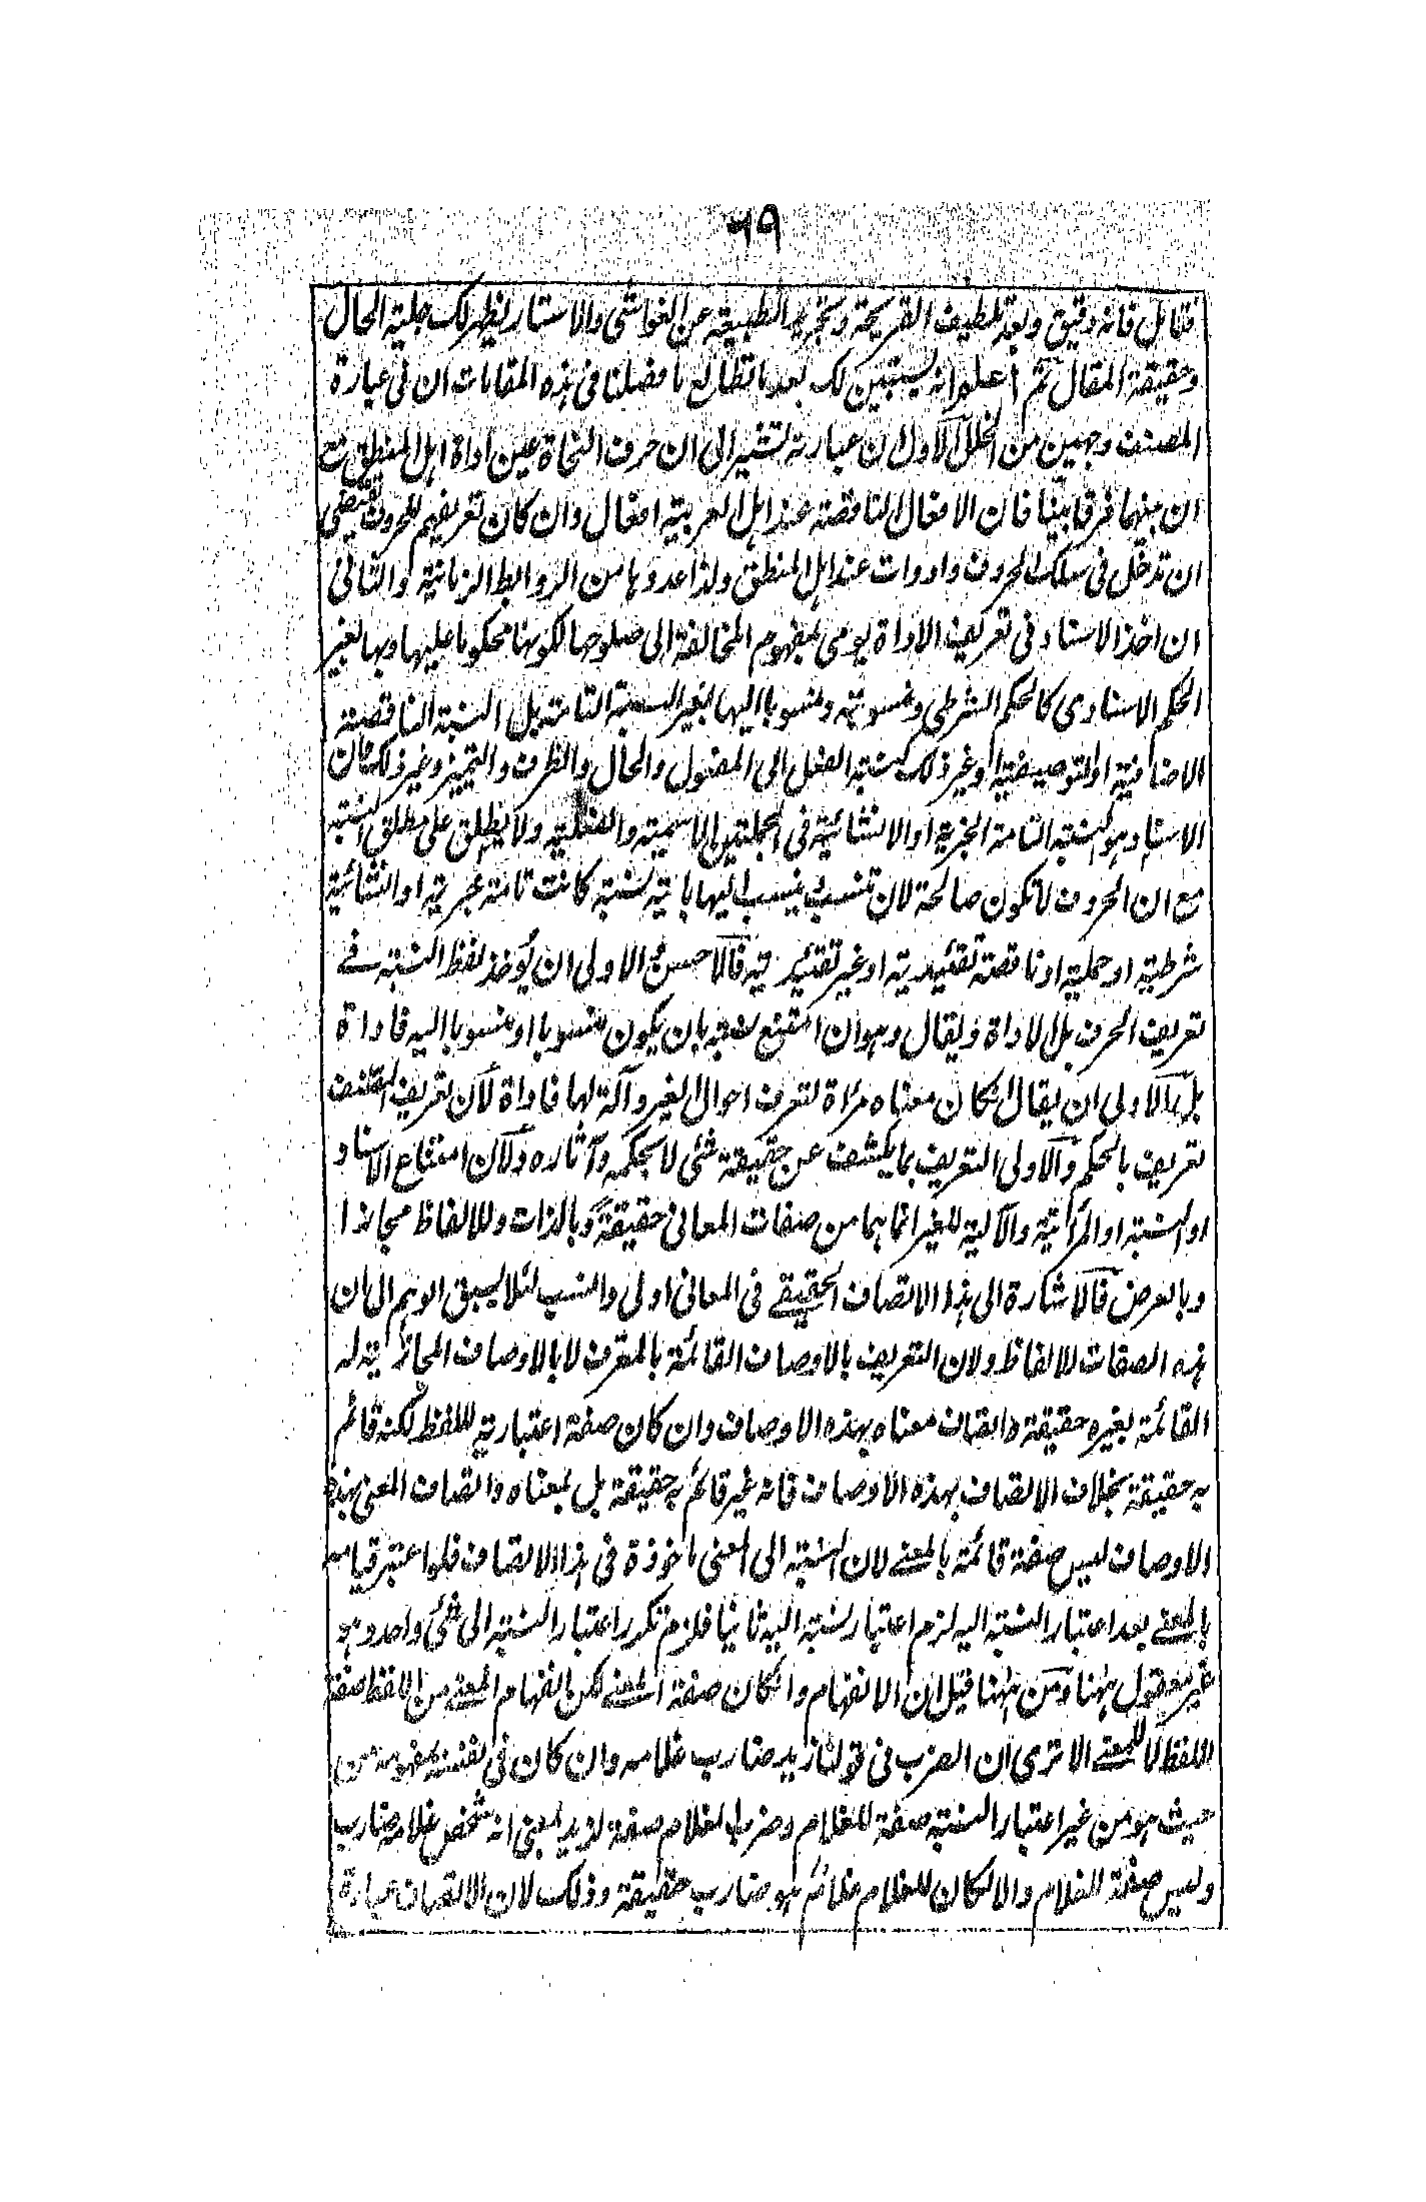 ٦٩
فتأمل فانه دقيق وبعد تلطيف القريحة وتجريد الطبيعة عن الغواشى والاستار يظهر لك جلية الحال
وحقيقة المقال ثم أعلم انه يستبين لك بعد ما تطالع ما فصلنا فى هذه المقامات ان فى عبارة
المصنف وجهين من الخلل الاول ان عبارته تشير الى ان حرف النحاة عين اداة اهل المنطق مع
ان بينهما فرقا بينا فان الافعال الناقصة عند اهل العربية افعال وان كان تعريفهم للحروف يقتضى
ان تدخل فى سلك الحروف وادوات عند اهل المنطق ولذا عدوها من الروابط الزمانية والثانى
ان اخذ الاسناد فى تعريف الاداة يومى بمفهوم المخالفة الى صلوحها لكونها محكوما عليها وبها بغير
الحكم الاسنادى كالحكم الشرطى ومنسوبة ومنسوبا اليها بغير النسبة التامة بل النسبة الناقصة
الاضافية او التوصيفية او غير ذلك كنسبة الفعل الى المفعول والحال والظرف والتمييز وغير ذلك فان
الاسناد هو النسبة التامة الخبرية او الانشائية فى الجملتين الاسمية والفعلية ولا يطلق على مطلق النسبة
مع ان الحروف لا تكون صالحة لان تنسب او ينسب اليها باية نسبة كانت تامة خبرية او انشائية
شرطية او حملية او ناقصة تقئيدية او غير تقئيدية فالاحسن الاولى ان يؤخذ لفظ النسبة فى
تعريف الحرف بل الاداة ويقال وهو ان امتنع نسبته بان يكون منسوبا او منسوبا اليه فاداة
بل الاولى ان يقال انكان معناه مرأة لتعرف احوال الغير وآلة لها فاداة لان تعريف المصنف
تعريف بالحكم والاولى التعريف بما يكشف عن حقيقة شئى لا بحكمه وآثاره ولان امتناع الاسناد
او النسبة او المرأتية والآلية للغير انما هما من صفات المعانى حقيقة وبالذات وللالفاظ مجازا
وبالعرض فالاشارة الى هذا الاتصاف الحقيقے فى المعانى اولى وانسب لئلا يسبق الوهم الى ان
هذه الصفات للالفاظ ولان التعريف بالاوصاف القائمة بالمعرف لا بالاوصاف المجازية له
القائمة بغيره حقيقة واتصاف معناه بهذه الاوصاف وان كان صفة اعتبارية للفظ لكنه قائم
به حقيقة بخلاف الاتصاف بهذه الاوصاف فانه غير قائم به حقيقة بل بمعناه واتصاف المعنى بهذه
الاوصاف ليس صفة قائمة بالمعنے لان النسبة الى المعنى ماخوذة فى هذا الاتصاف فلو اعتبر قيامه
بالمعنے بعد اعتبار النسبة اليه لزم اعتبار نسبة اليه ثانيا فلزم تكرر اعتبار النسبة الى شئى واحد وهو
غير معقول ههنا ومن ههنا قيل ان الانفهام وانكان صفة المعنے لكن انفهام المعنے من اللفظ صفة
اللفظ لا للمعنے الا ترى ان الضرب فى قولنا زيد ضارب غلامه وان كان فى نفسه بمفهومه من
حيث هو من غير اعتبار النسبة صفة للغلام وضرب الغلام صفة لزيد بمعنى انه شخص غلامه ضارب
وليس صفة للغلام والا لكان للغلام غلام هو ضارب حقيقة وذلك لان الاتصاف عبارة